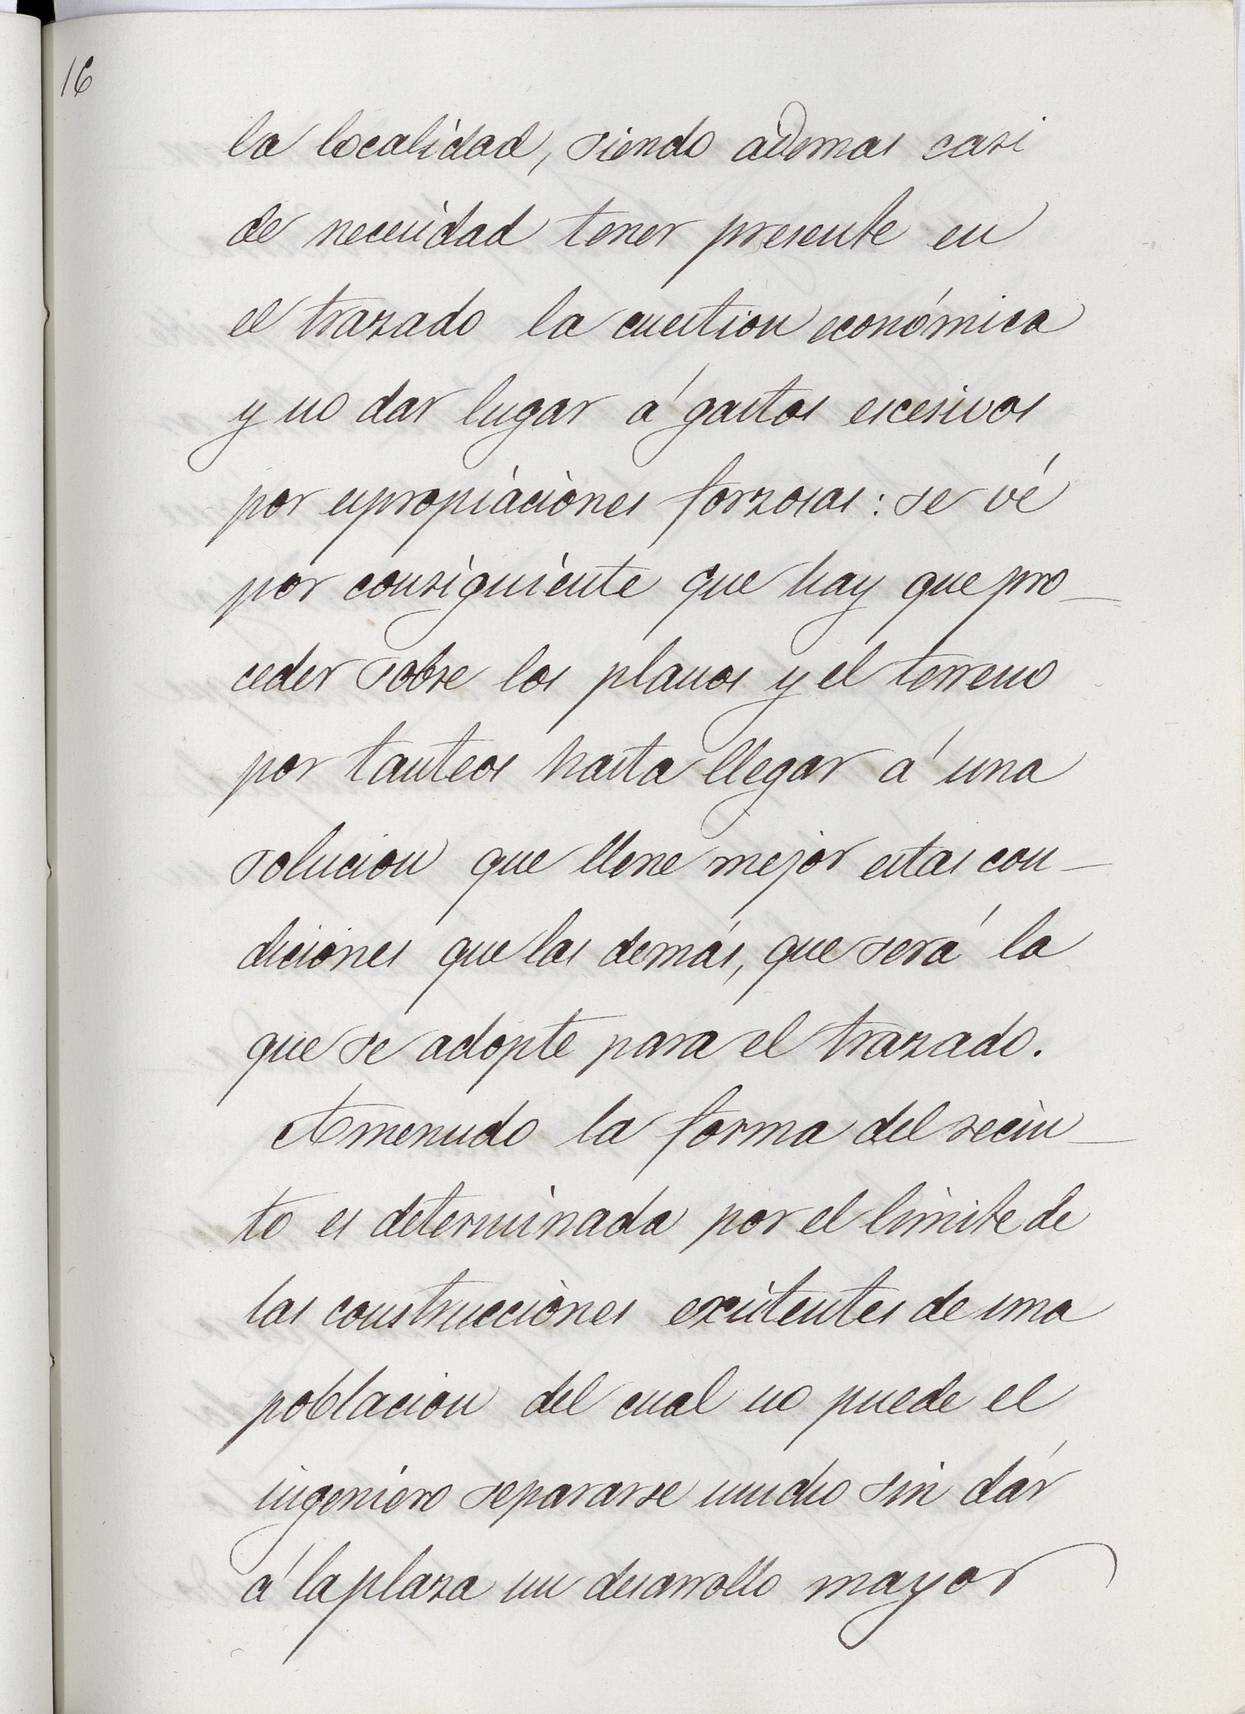 16
la localidad, siendo ademas casi
de necesidad tener presente en
el trazado la cuestion económica
y no dar lugar á gastos escesivos
por espropiaciones forzosas: se vé
por consiguiente que hay que pro-
ceder sobre los planos y el terreno
por tanteos hasta llegar á una
solucion que llene mejor estas con-
diciones que las demás, que será la
que se adopte para el trazado.
Amenudo la forma del recin-
to es determinada por el limite de
las construcciones existentes de una
poblacion del cual no puede el
ingeniero separarse mucho sin dár
á la plaza un desarrollo mayor